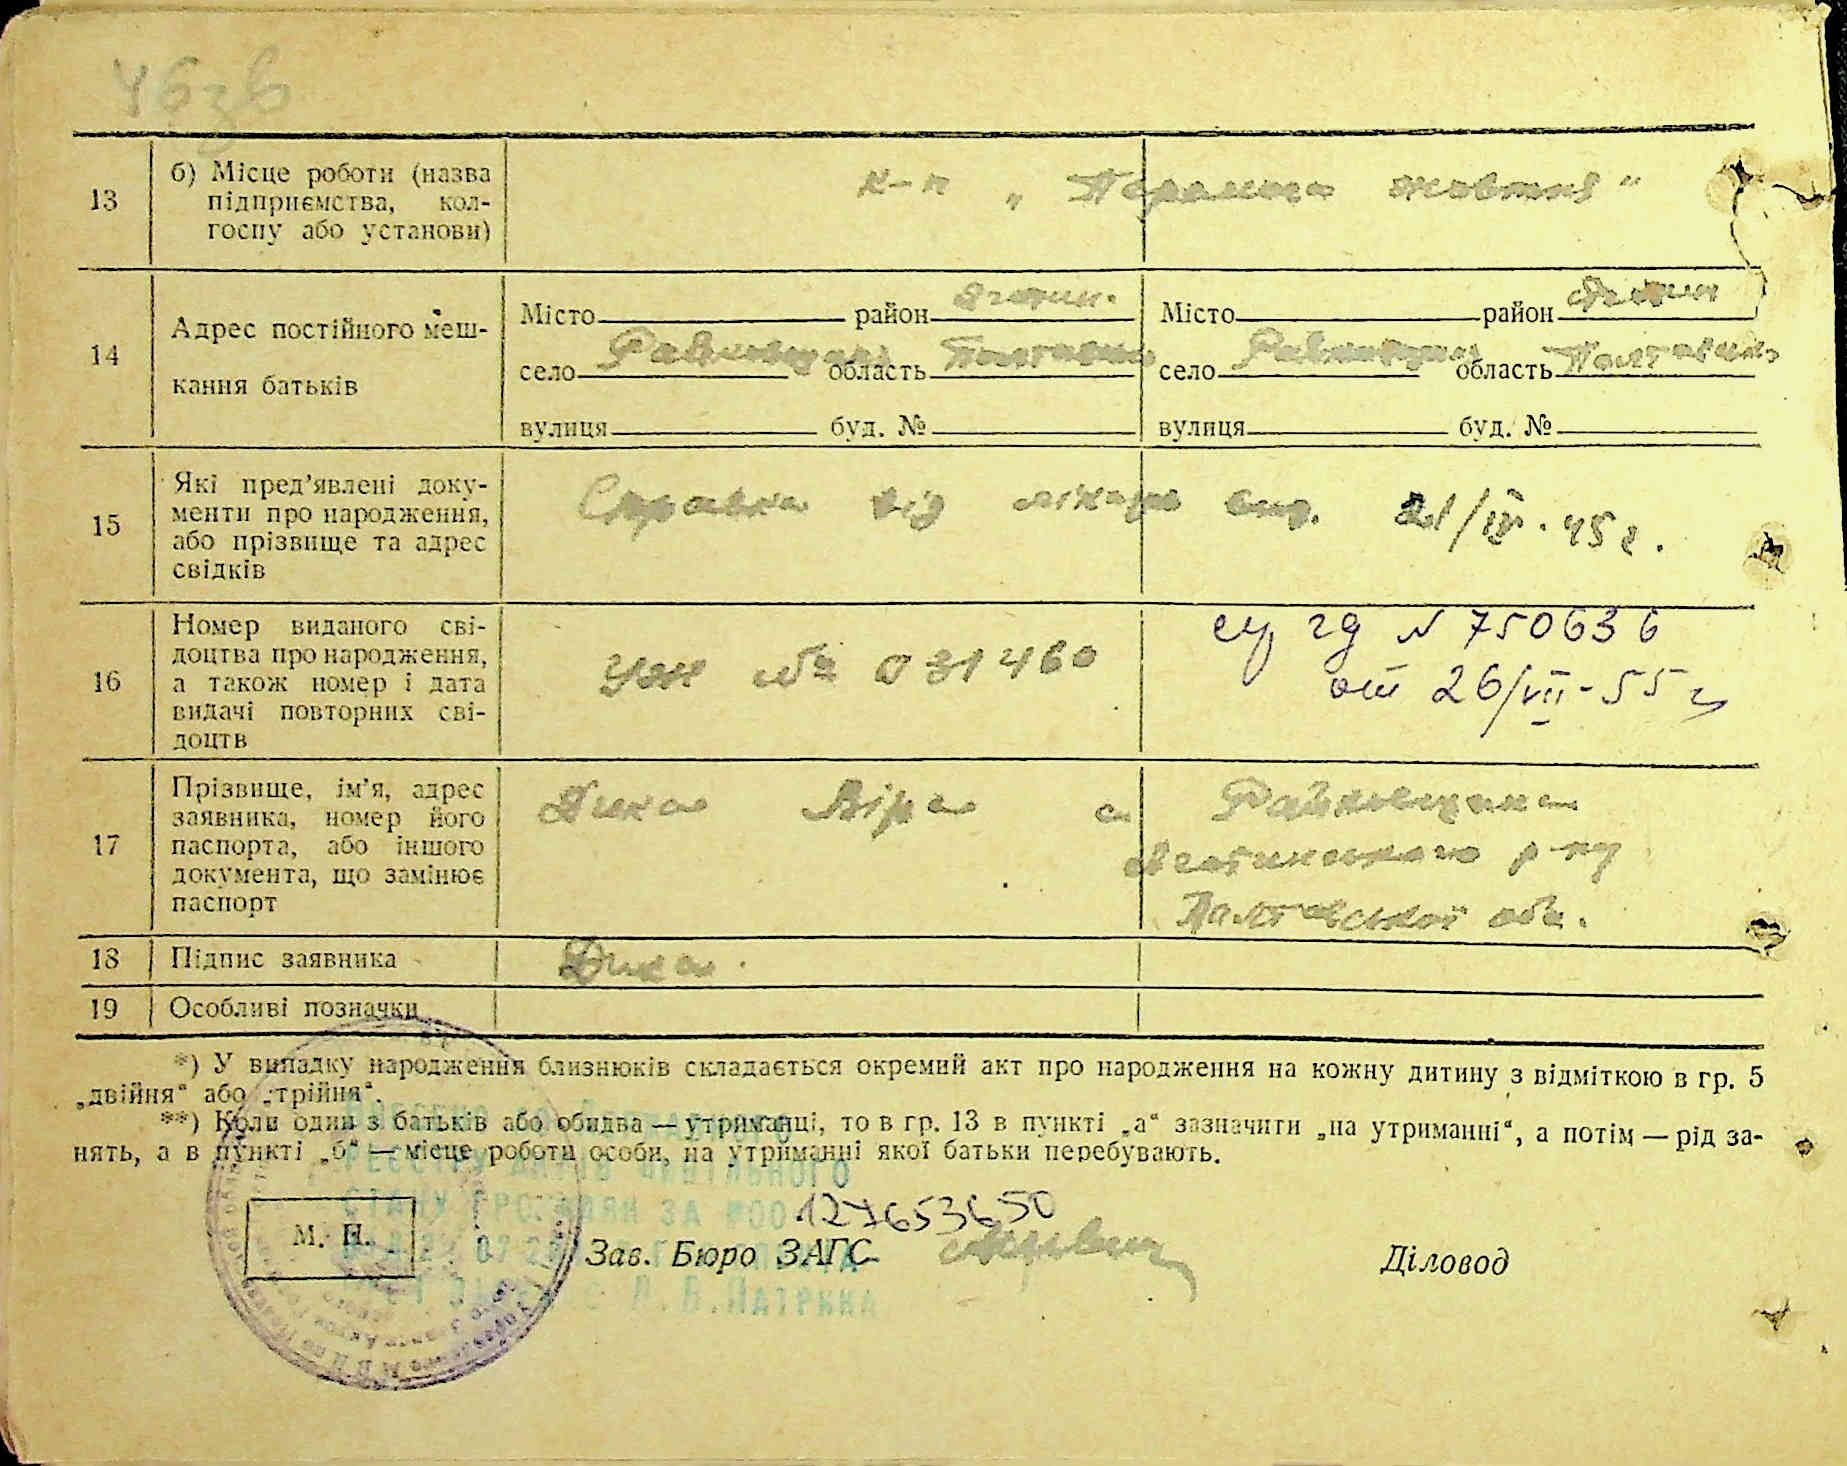 46зв
13
б) Місце роботи (назва
підприємства, кол-
госпу або установи)
к-п „ Перемога жовтня "
14
Адрес постійного меш-
кання батьків
Місто район Яготин.
село область Полтавськ
вулиця буд. №
Місто район
село область Полтавськ
вулиця буд. №
15
Які пред’явлені доку-
менти про народження,
або прізвище та адрес
свідків
Справка від лікаря вид. 21/IV. 45 г.
16
Номер виданого сві-
доцтва про народження,
а також номер і дата
видачі повторних сві-
доцтв
№ 031460
N 750636
от 26/VII-55 г
17
Прізвище, ім’я, адрес
заявника, номер його
паспорта, або іншого
документа, що замінює
паспорт
Дика Віра с. Райковщина
р-ну
Полтавської обл.
18
Підпис заявника
Дика.
19
Особливі позначки
*) У випадку народження близнюків складається окремий акт про народження на кожну дитину з відміткою в гр. 5
„двійня“ або „трійня“.
**) Коли один з батьків або обидва — утриманці, то в гр. 13 в пункті „а“ зазначити „на утриманні“, а потім — рід за-
нять, а в пункті „б“ — місце роботи особи, на утриманні якої батьки перебувають.
СТАНУ ГРОМАДЯН ЗА №00 127653650
М. П.
Зав. Бюро ЗАГС
Діловод